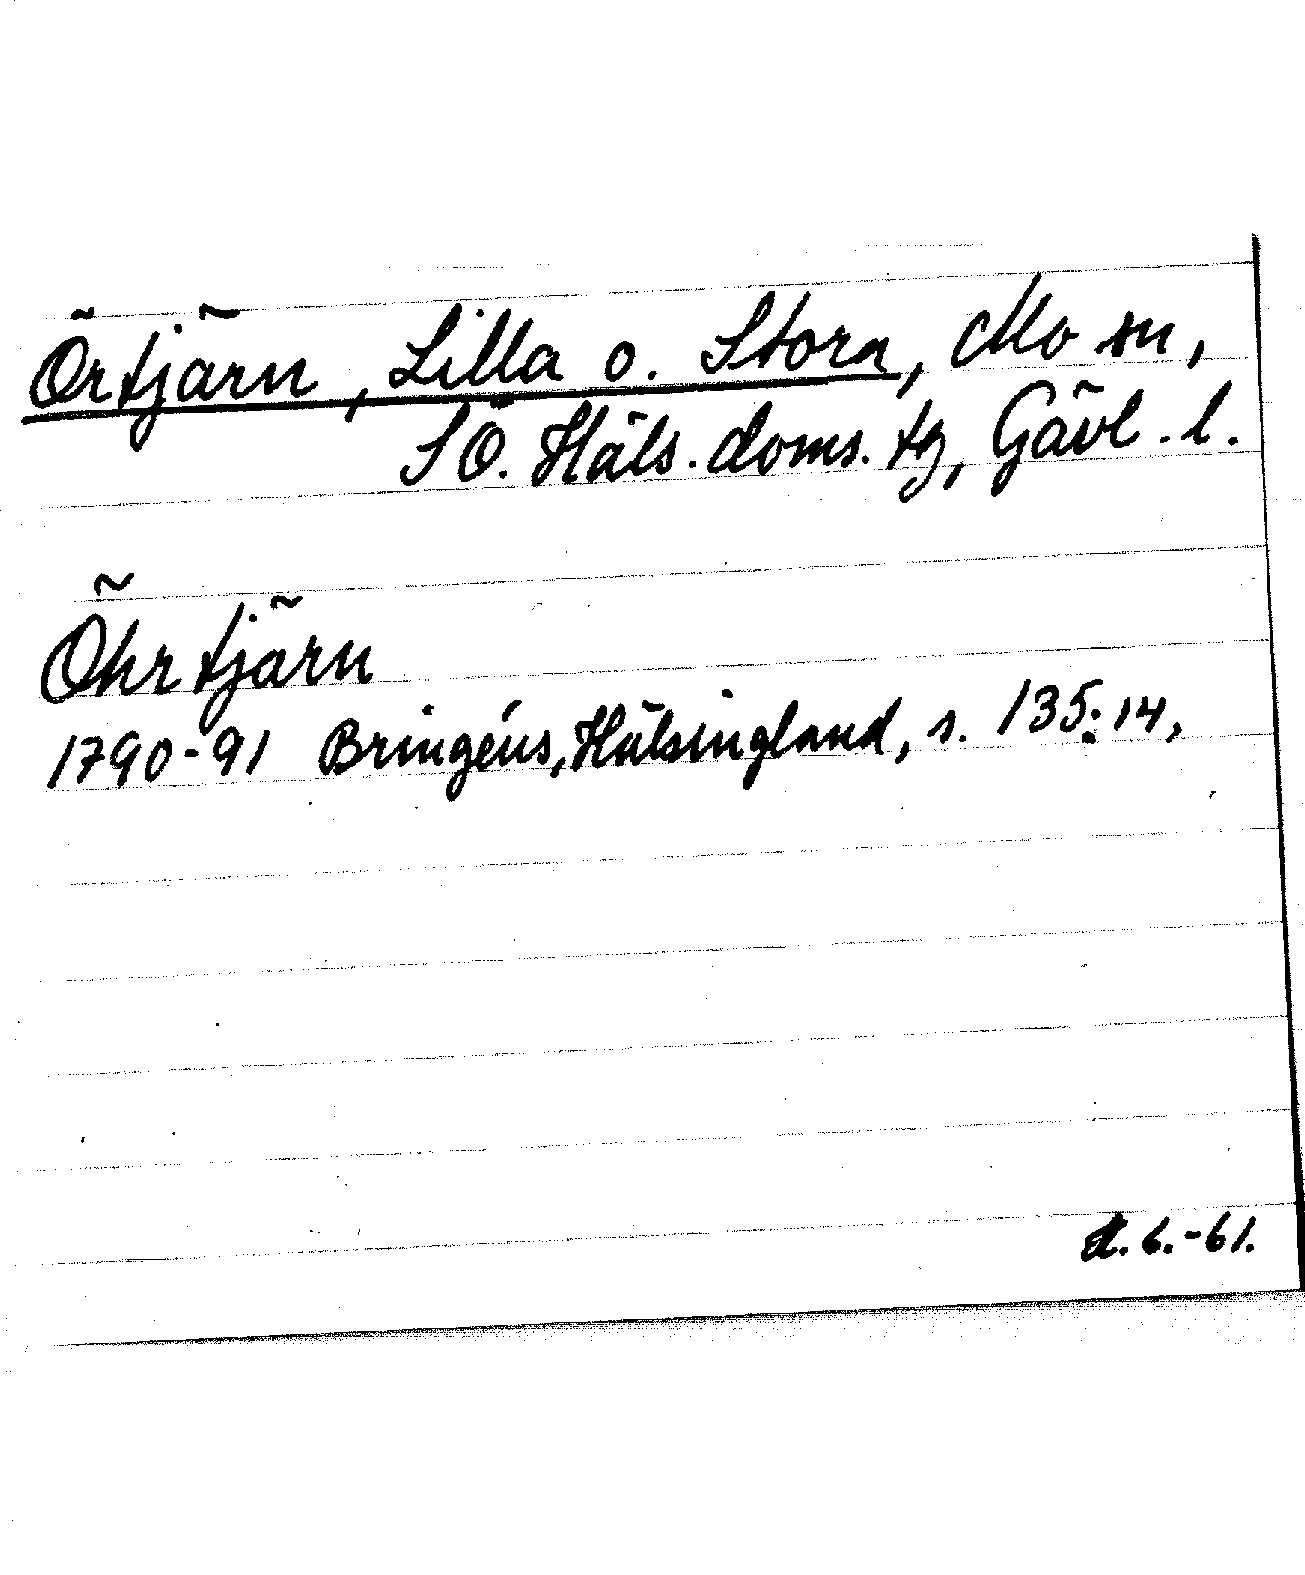 Örtjärn, Lilla o. Stora, Mo sn,
SÖ. Häls. doms. tg, Gävl. l.
Öhrtjärn
1790-91 Bringéus, Hälsingland, s. 135:14,
6.-61.